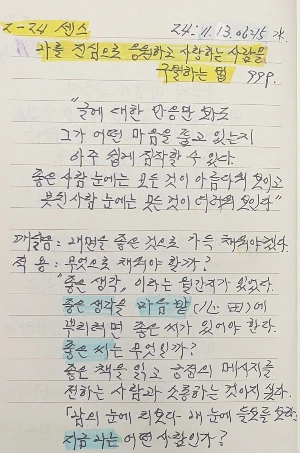 2-24 센스 24.11.13.06:15 개
나를 진심으로 응원하고 사랑하는 사람을
구별하는 법 999.
"글에 대한 반응만 봐도
그가 어떤 마음을 품고 있는지
아주 쉽게 짐작할 수 있다.
좋은 사람 눈에는 모든 것이 아름다워 보이고
못된 사람 눈에는 모든 것이 더러워 보인다"
깨달음 : 내면을 좋은 것으로 가득 채워야겠다.
적 용 : 무엇으로 채워야 할까?
"좋은 생각"이라는 월간지가 있었다.
좋은 생각을 마음 밭(心 田)에
뿌리려면 좋은 씨가 있어야 한다.
좋은 씨는 무엇일까?
좋은 책을 읽고 긍정의 메시지를
전하는 사람과 소통하는 것이지 싶다.
「남의 눈에 티보다 내 눈에 들보를 보라」
지금 나는 어떤 사람인가?